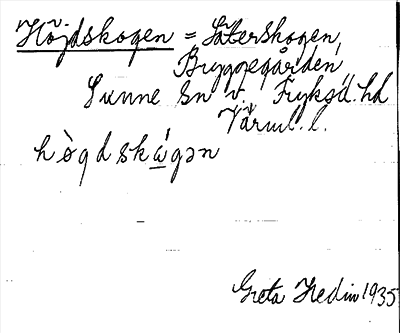 Höjdskogen = Sätterskogen,
Bryggegården
Sunne sn v. Fryksd. hd
Värml. l.
hògdskά̲gən
Greta Hedin 1935